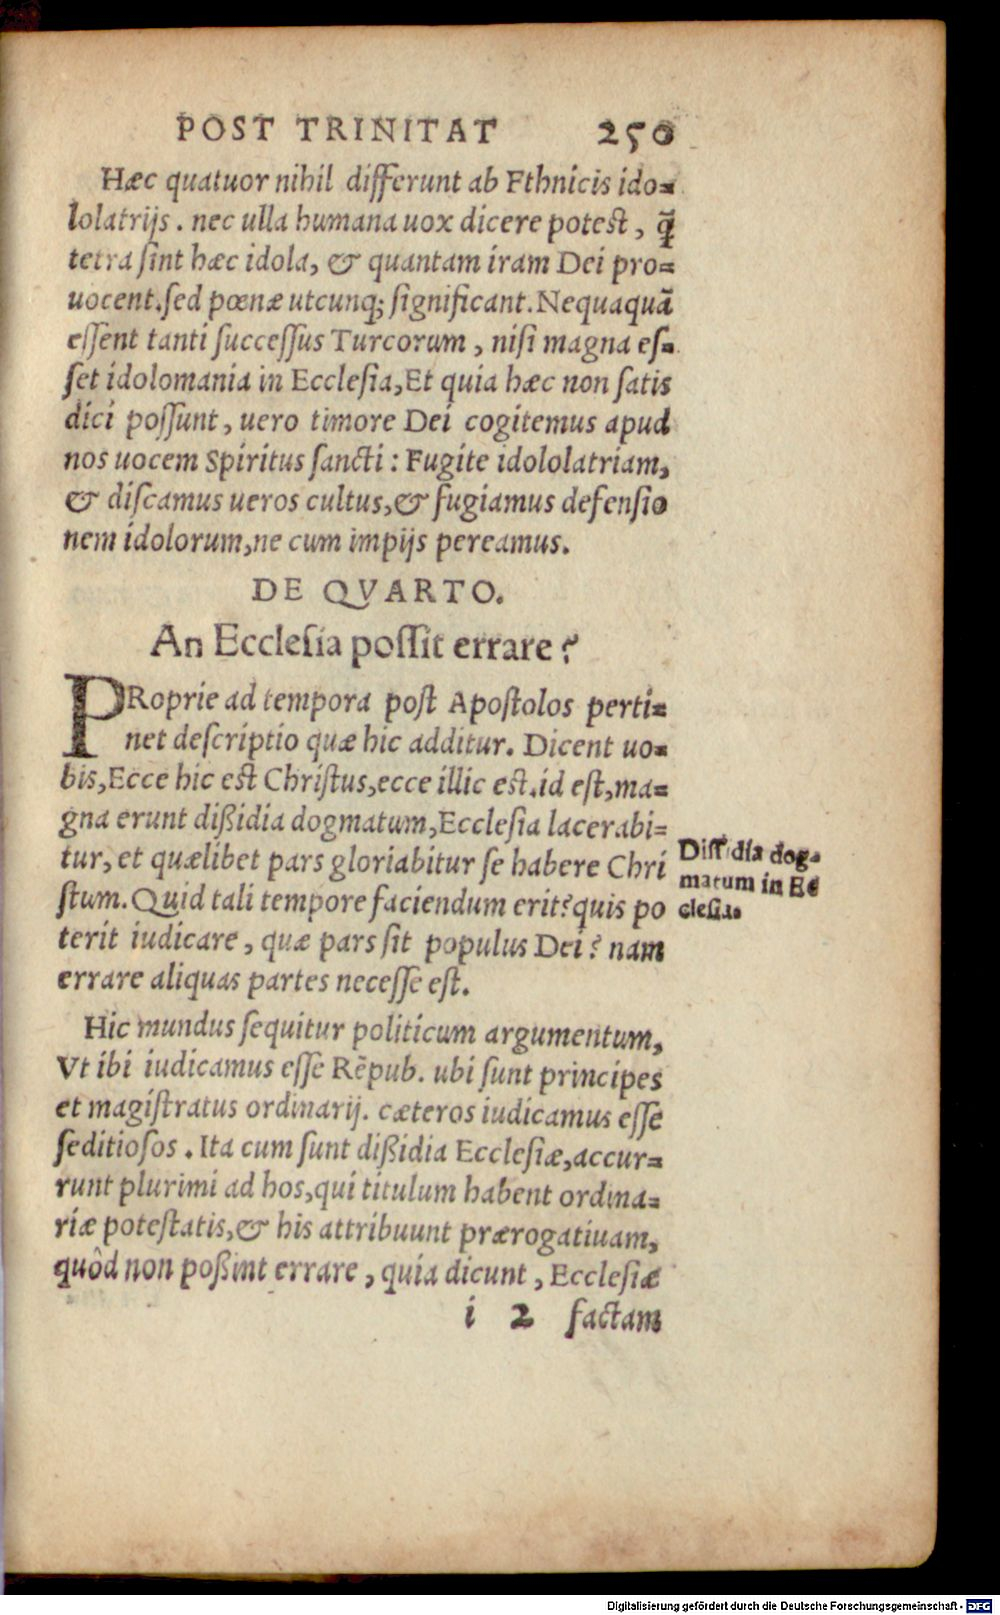 POST TRINITAT 250
Hæc quatuor nihil differunt ab Fthnicis ido=
lolatrijs. nec ulla humana uox dicere potest, q̃
tetra sint hæc idola, & quantam iram Dei pro=
uocent. sed pœnæ utcunq; significant. Nequaquã
essent tanti successus Turcorum, nisi magna es=
set idolomania in Ecclesia, Et quia hæc non satis
dici possunt, uero timore Dei cogitemus apud
nos uocem Spiritus sancti: Fugite idololatriam,
& discamus ueros cultus, & fugiamus defensio
nem idolorum, ne cum impijs pereamus.
DE QVARTO.
An Ecclesia possit errare?
PRoprie ad tempora post Apostolos perti=
net descriptio quæ hic additur. Dicent uo=
bis, Ecce hic est Christus, ecce illic est. id est, ma=
gna erunt dißidia dogmatum, Ecclesia lacerabi=
tur, et quælibet pars gloriabitur se habere Chri
stum. Quid tali tempore faciendum erit? quis po
terit iudicare, quæ pars sit populus Dei? nam
errare aliquas partes necesse est.
Dissidia dog=
matum in Ec
clesia.
Hic mundus sequitur politicum argumentum,
Vt ibi iudicamus esse Rẽpub. ubi sunt principes
et magistratus ordinarij. cæteros iudicamus esse
seditiosos. Ita cum sunt dißidia Ecclesiæ, accur=
runt plurimi ad hos, qui titulum habent ordina=
riæ potestatis, & his attribuunt prærogatiuam,
quòd non poßint errare, quia dicunt, Ecclesiæ
i 2 factam
Digitalisierung gefördert durch die Deutsche Forschungsgemeinschaft - DFG